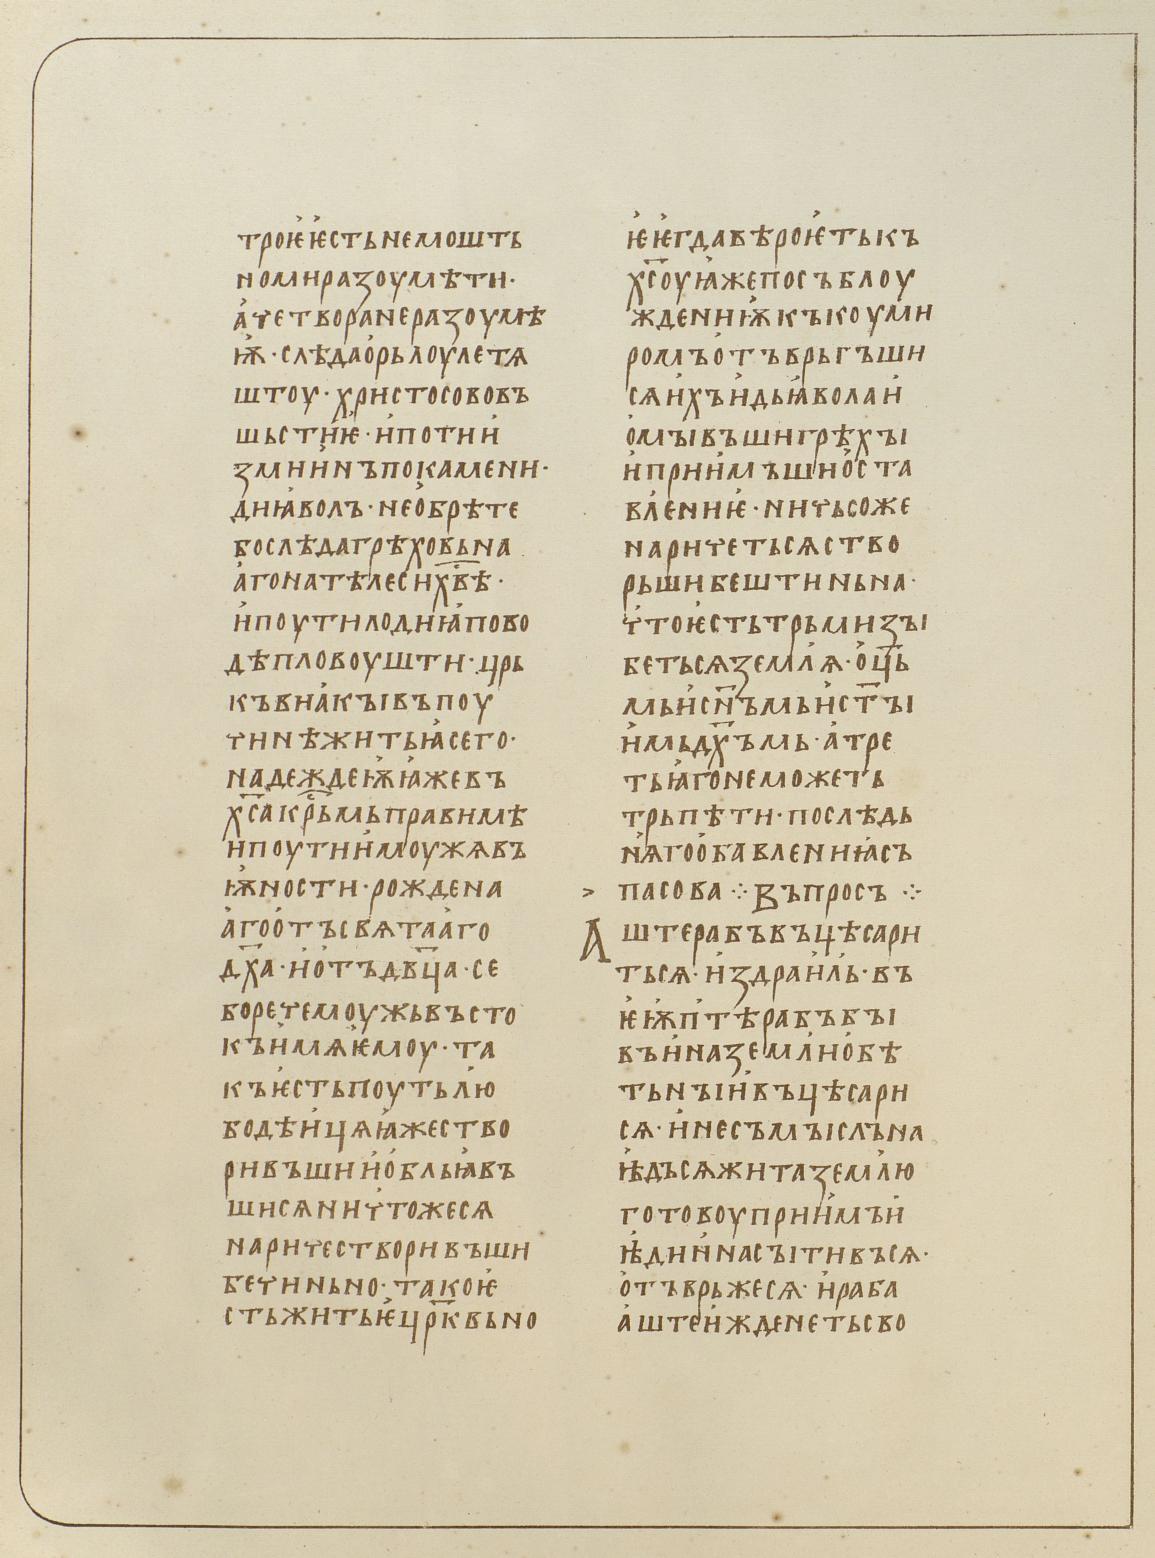 троѥ ѥстьнемошть
номиразоумѣти·
ачетворанеразоумѣ
ѭ·слѣдаорьлоулетѧ
штоу·христосововъ
шьстиѥ·ипотии
змиинъпокамени·
диꙗволъ·необрѣте
бослѣдагрѣховьна
агонатѣлесихв҃ѣ·
ипоутилодиꙗпово
дѣпловоушти·црь
къвнаꙗкъівъпоу
чинѣжитьꙗсего·
надеждеѭꙗжевъ
хс҃акрь҃мьправимѣ
ипоутиимоужѧвъ
ѭности·рождена
агоотъсвѧтааго
дх҃а·иотъдв҃ца·се
боречемоужьвъсто
къимѧѥмоу·та
къѥстьпоутьлю
бодѣицѧꙗжество
ривъшииобльꙗвъ
шисѧничтожесѧ
наричестворивъши
бечиньно·такоѥ
стьжитьѥцр҃квьно
ѥѥгдавѣроѥтькъ
хс҃оуꙗжепосъблоу
ждениѭкъкоуми
ромъотъврьгъши
сѧихъидьꙗволаи
омъівъшигрѣхъі
иприимъшиоста
влениѥ·ничьсоже
наричетьсѧство
рьшибештиньна·
чтоѥстьтрьмизъі
бетьсѧземлѧ·оц҃ь
мьисн҃ъмьист҃ъі
имьдх҃ъмь·атре
тьꙗгонеможеть
трьпѣти·послѣдь
нѧгоοбавлениꙗсъ
> пасова ⁘ Въпросъ ⁘
Аштерабъвъцѣсари
тьсѧ·издраиль·въ
ѥѭптѣрабъбъі
въиназемлиобѣ
тьнъіивъцѣсари
сѧ·инесъмъісльна
ꙗдьсѧжитаземлю
готовоуприимъи
ꙗдиинасъітивъсѧ·
отъврьжесѧ·ираба
аштеижденетьсво